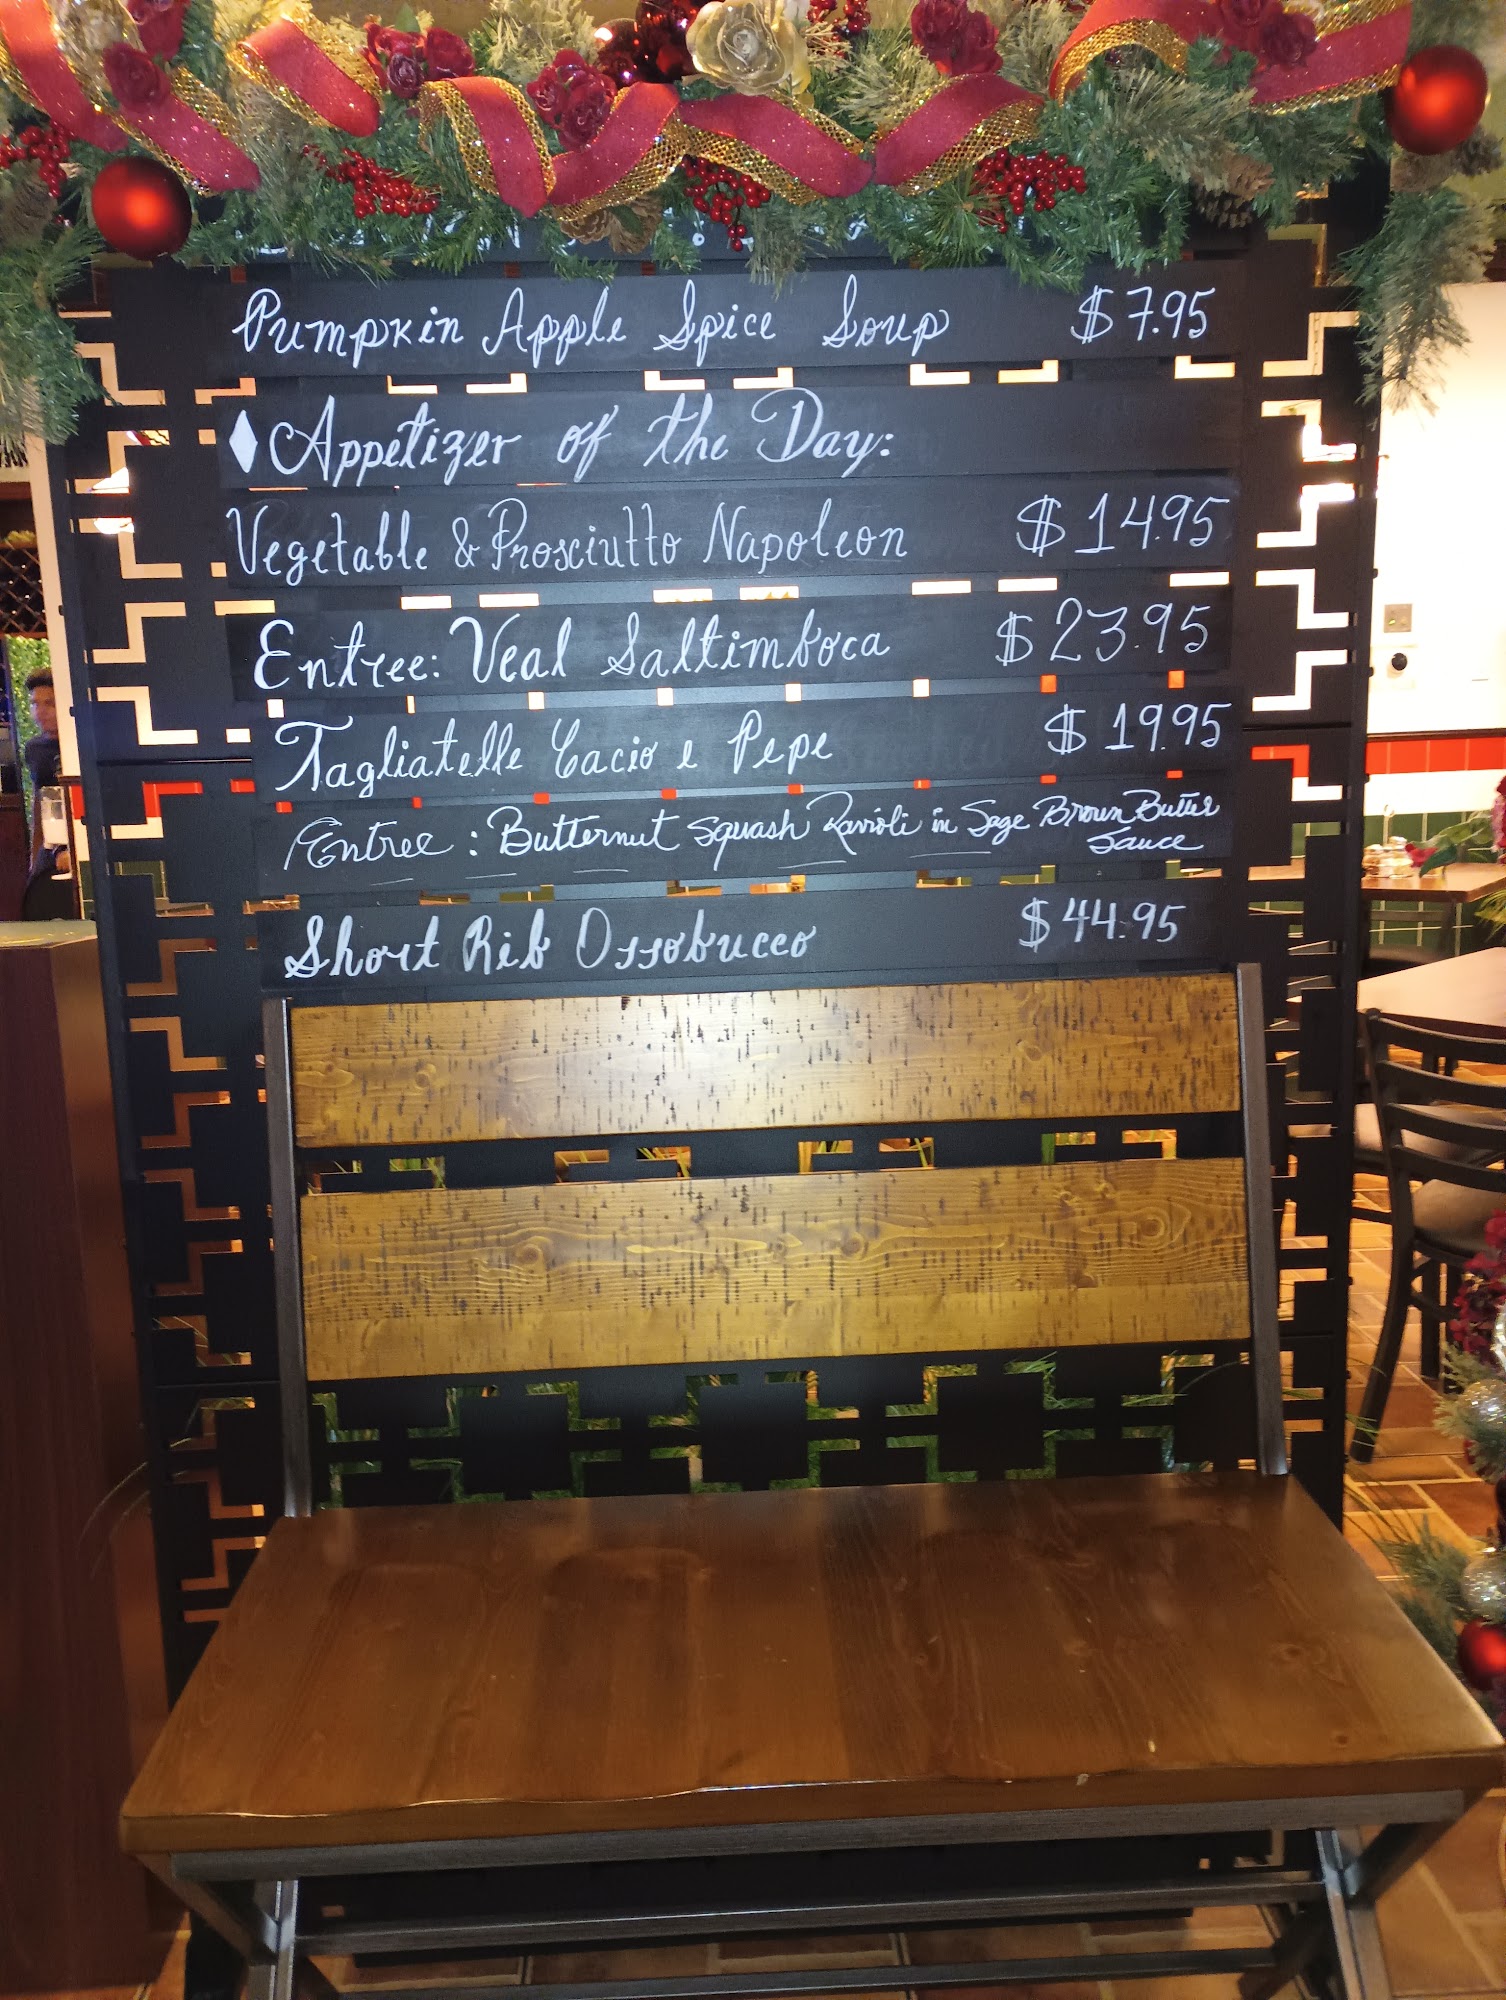 Pumpkin Apple Spice Soup $7.95
Appetizer of the Day:
Vegetable & Prosciutto Napoleon $14.95
Entree: Veal Saltimboca $23.95
Tagliatelle Cacio e Pepe $19.95
Entree: Butternut Squash Ravioli in Sage Brown Butter
Sauce
Short Rib Ossobucco $44.95